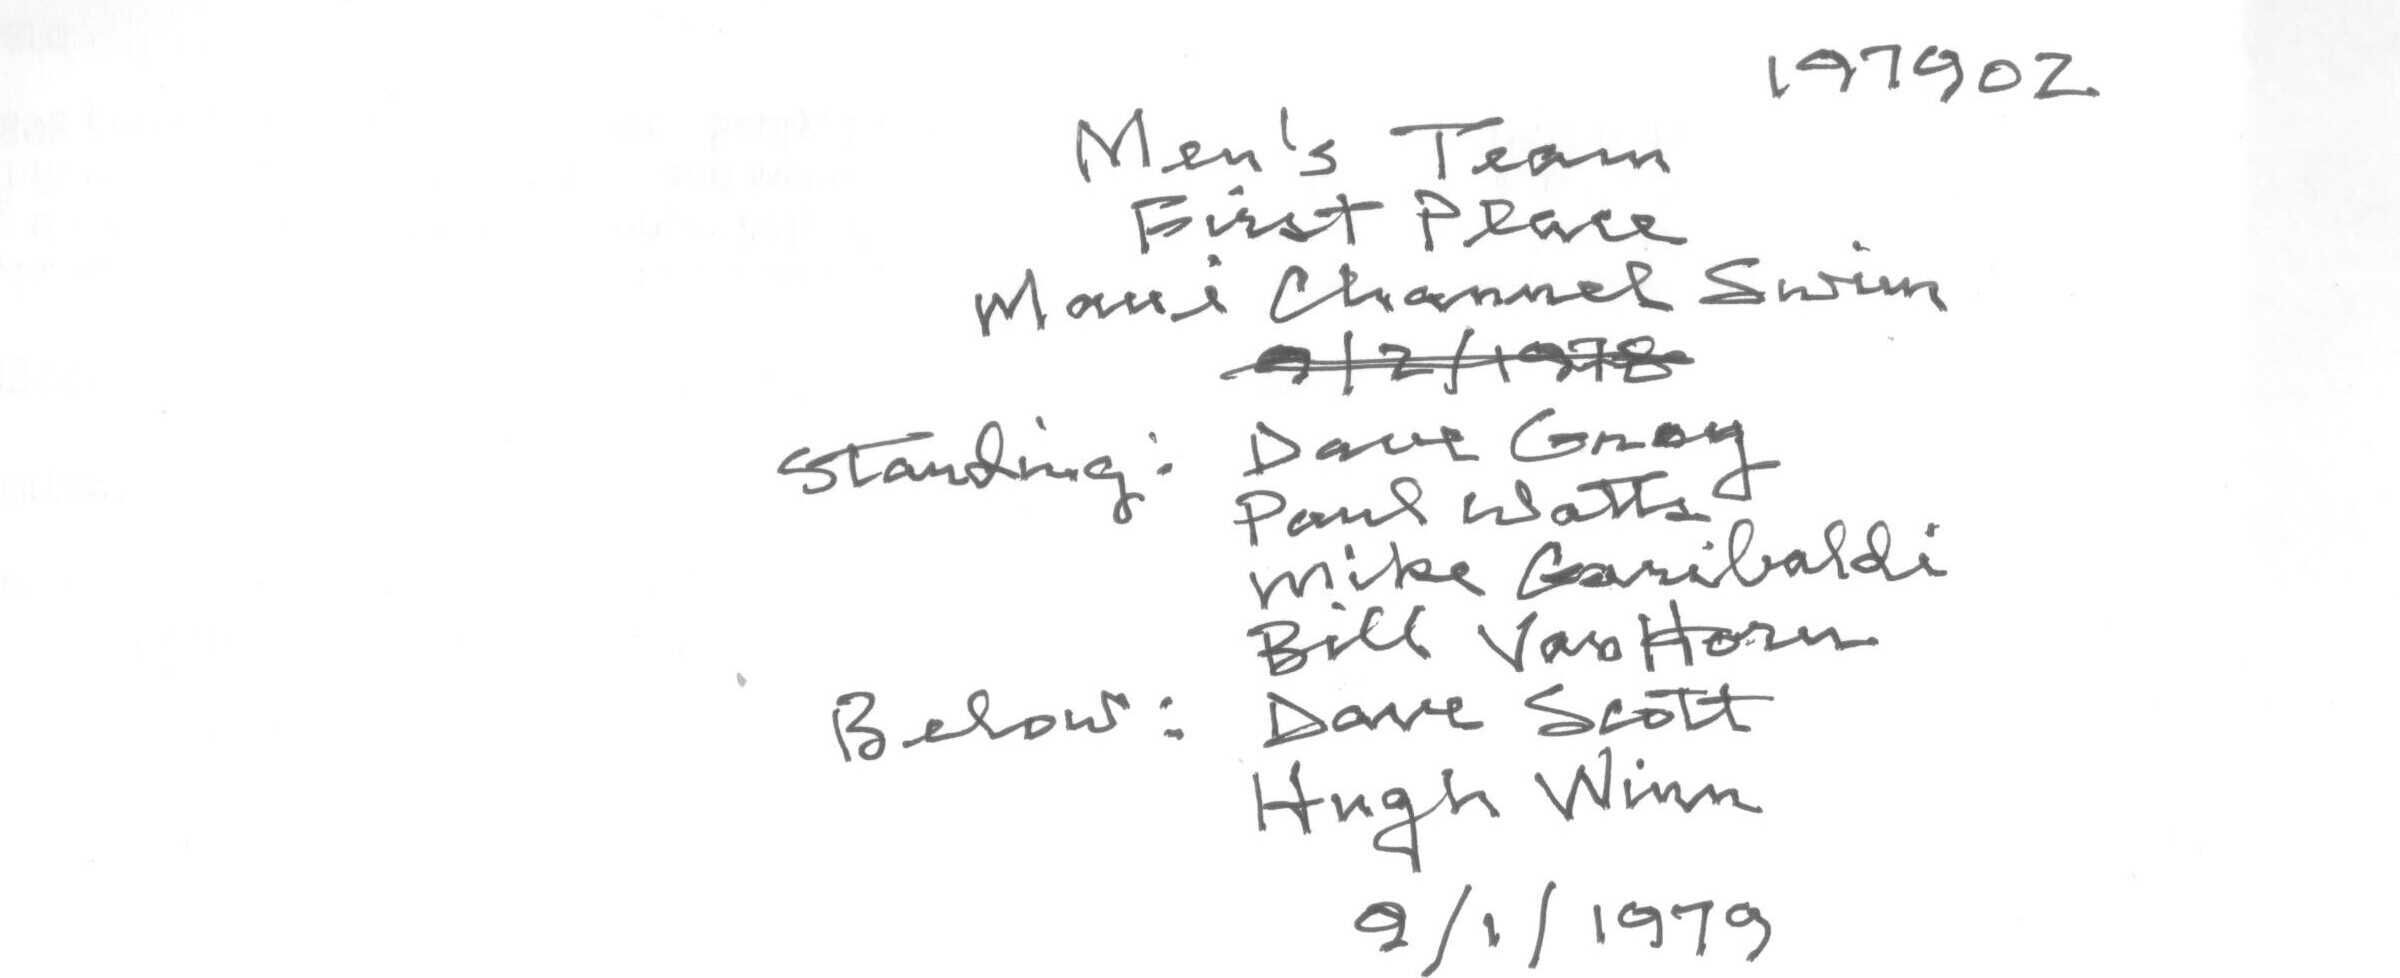 197902
Men's Team
First Place
Maui Channel Swim
9/2/1978
Standing: Dave Gray
Paul Watts
Mike Garibaldi
Bill Van Horn
Below: Dave Scott
Hugh Winn
9/1/1979